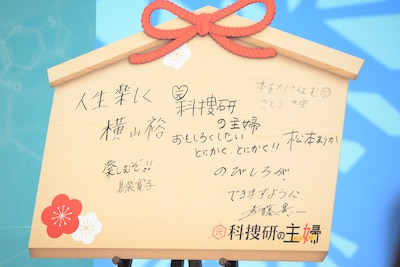 人生楽しく
横山裕
楽しむぞ!!
島袋寛子
科捜研
の主婦
おもしろくしたい
とにかく、とにかく!!
松本まりか
本をたくさんよむ
さとう 大空
のびしろが
できますように
元 科捜研の主婦